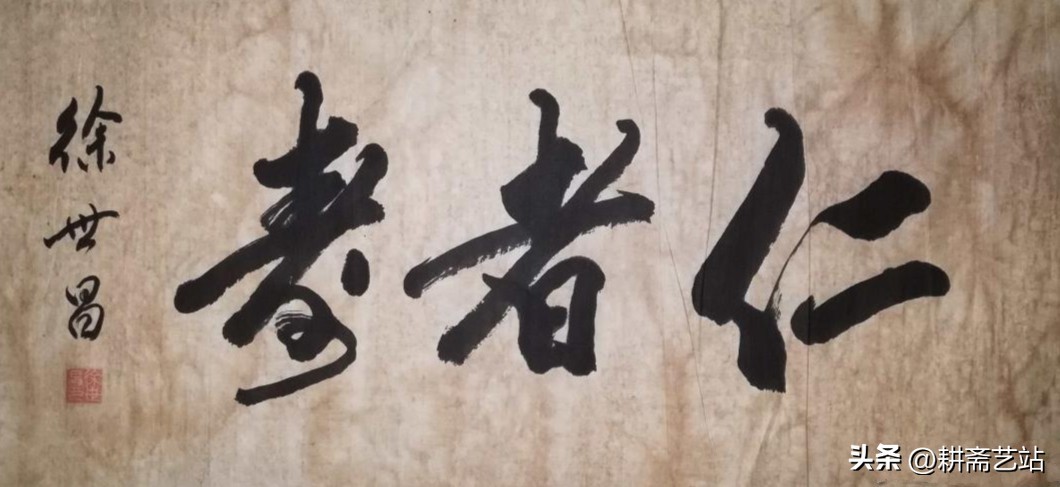 仁者寿
徐世昌
头条 @耕斋艺站